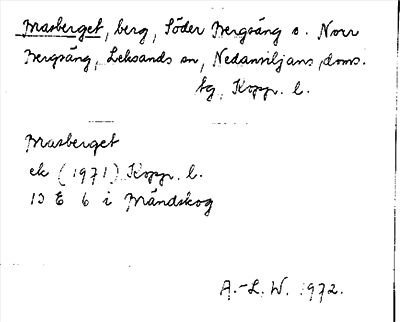 Masberget, berg, Söder Bergsäng o. Norr
Bergsäng, Leksands sn, Nedansiljans doms.
tg, Kopp. l.
Masberget
ek (1971) Kopp. l.
13 E 6 i Mändskog
A.-L. W. 1972.